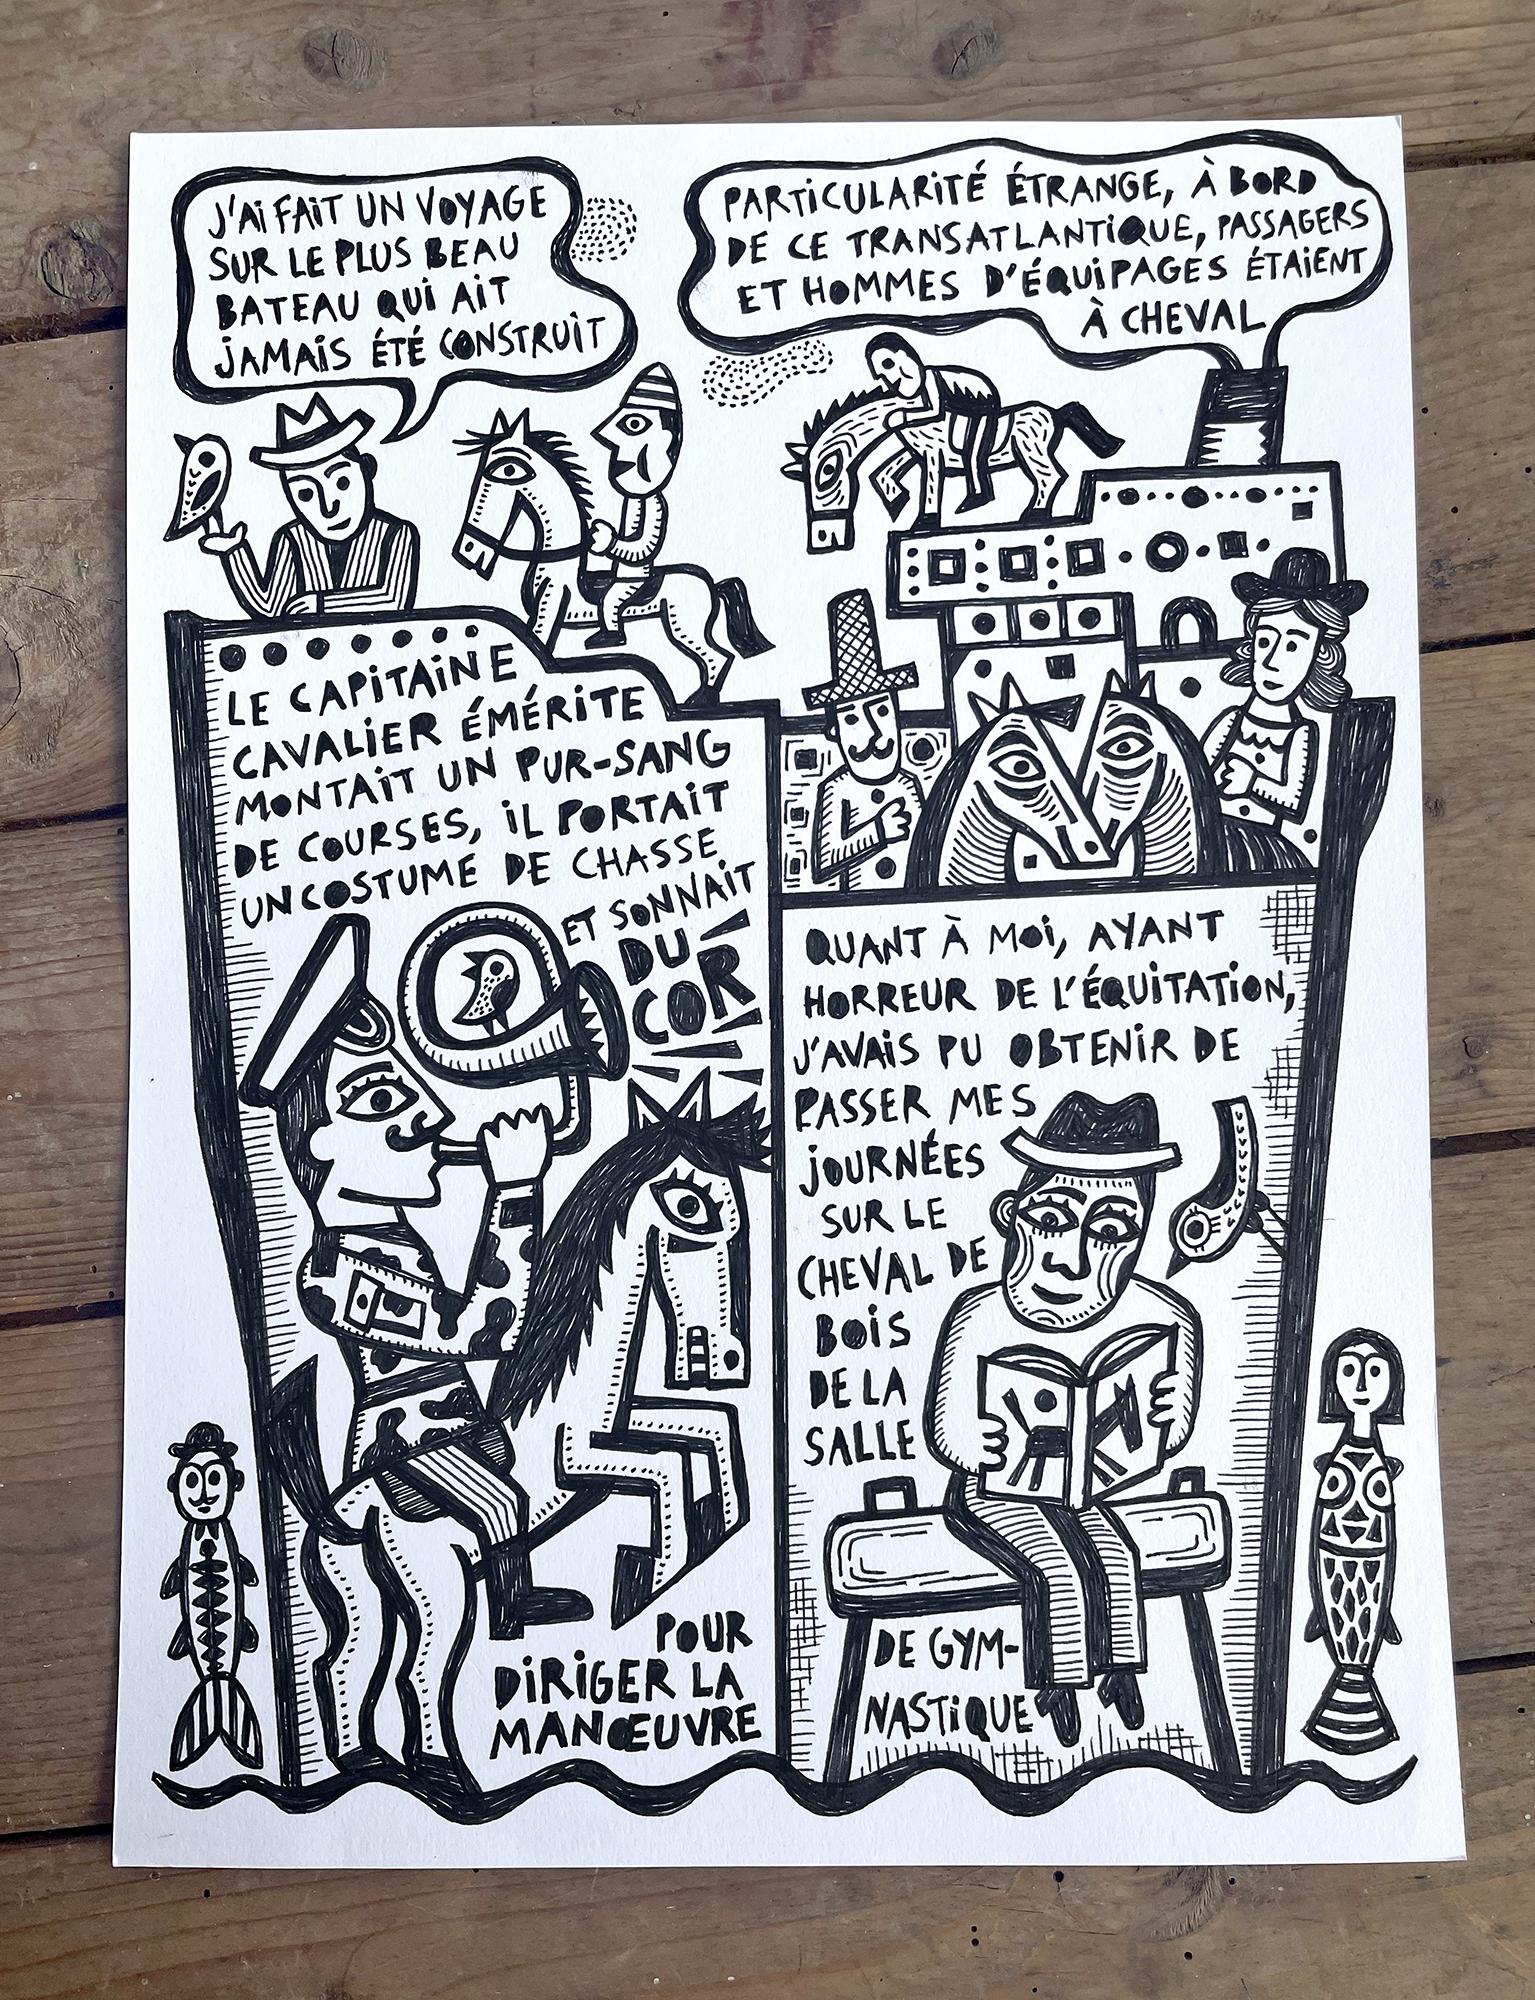 J'Ai FAiT UN VOYAGE
SUR LE PLUS BEAU
BATEAU QUi AiT
JAMAiS ÉTÉ CONSTRUiT
PARTiCULARiTÉ ÉTRANGE, À BORD
DE CE TRANSATLANTiQUE, PASSAGERS
ET HOMMES D'ÉQUiPAGES ÉTAiENT
À CHEVAL
LE CAPiTAiNE
CAVALiER ÉMÉRiTE
MONTAiT UN PUR-SANG
DE COURSES, iL PORTAiT
UN COSTUME DE CHASSE
ET SONNAiT
DU
COR
POUR
DiRiGER LA
MANŒUVRE
QUANT À MOi, AYANT
HORREUR DE L'ÉQUiTATiON,
J'AVAiS PU OBTENiR DE
PASSER MES
JOURNÉES
SUR LE
CHEVAL DE
BOiS
DE LA
SALLE
DE GYM-
NASTiQUE